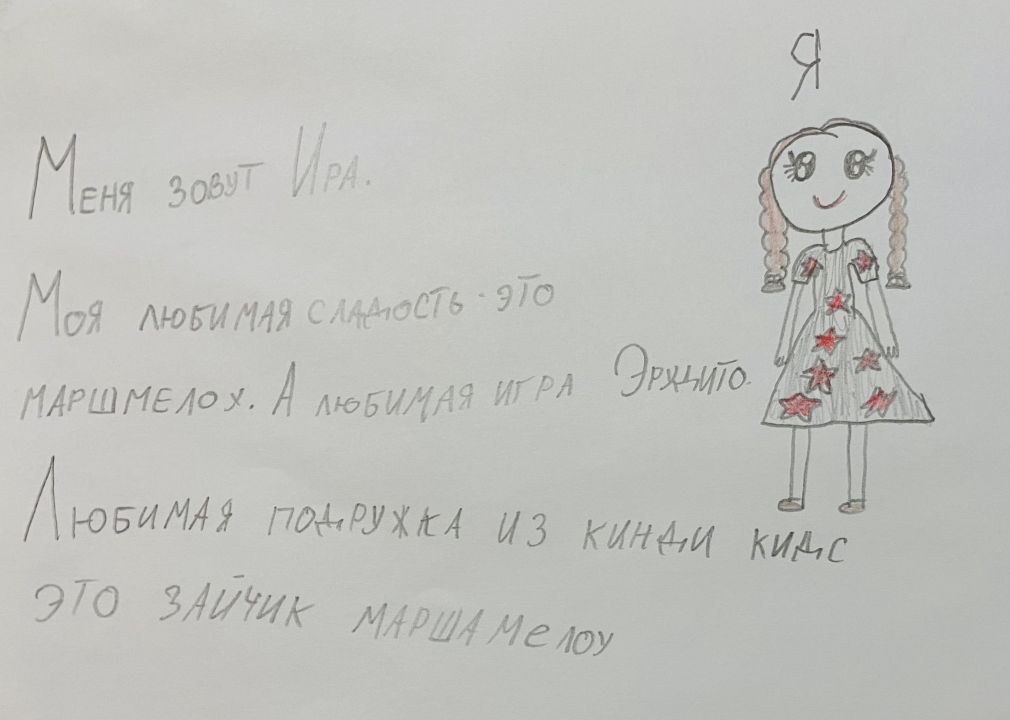 Я
Меня зовут Ира.
Моя любимая сладость - это
маршмелох. А любимая игра Эрждито.
Любимая подружка из кинди кидс
это зайчик маршамелоу